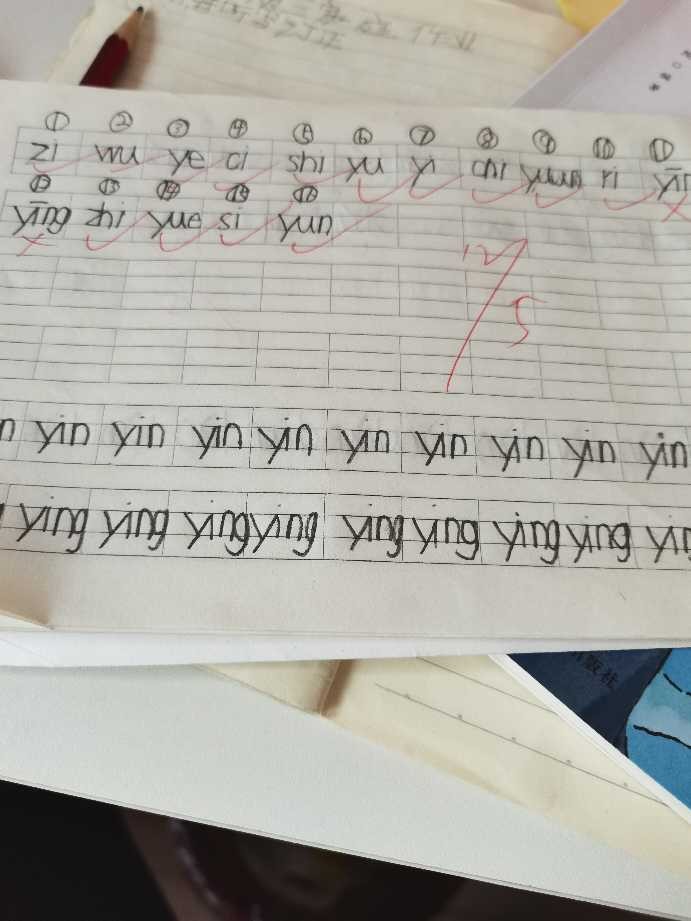 ① ② ③ ④ ⑤ ⑥ ⑦ ⑧ ⑨ ⑩ ⑪
zi wu ye ci shi yu yi chi yuan ri yīn
⑫ ⑬ ⑭ ⑮ ⑯
yīng zhi yue si yun
12/5
yin yin yin yin yin yin yin yin yin
ying ying ying ying ying ying ying ying
出版社